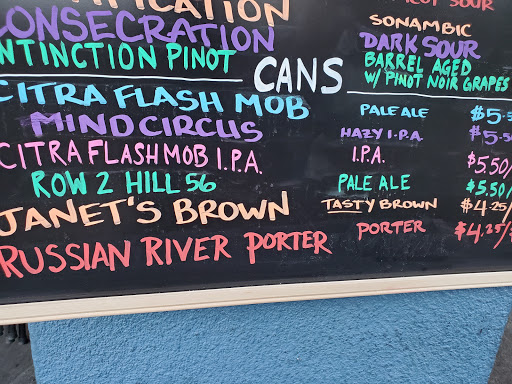 SONAMBIC
CONSECRATION DARK SOUR
INTINCTION PINOT BARREL AGED
W/ PINOT NOIR GRAPES
CANS
CITRA FLASH MOB PALE ALE
MIND CIRCUS HAZY I.P.A.
CITRA FLASH MOB I.P.A. I.P.A. $5.50/
ROW 2 HILL 56 PALE ALE $5.50/
JANET'S BROWN TASTY BROWN $4.25/
RUSSIAN RIVER PORTER PORTER $4.25/